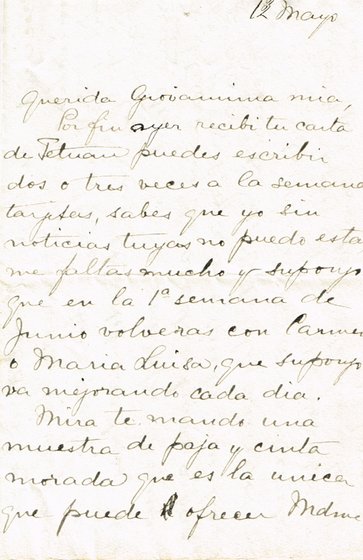 12 Mayo
Querida Giovannina mia,
Por fin ayer recibi tu carta
de Tetuan puedes escribir
dos o tres veces a la semana
tarjetas, sabes que yo sin
noticias tuyas no puedo esta
me faltas mucho y supongo
que en la 1ª semana de
Junio volveras con Carmen
o Maria Luisa, que supongo
va mejorando cada dia.
Mira te mando una
muestra de paja y cinta
morada que es la unica
que puede ofrecer Mdme